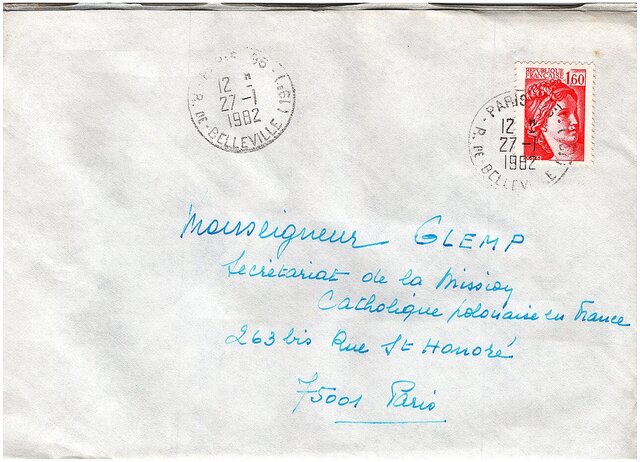 PARIS 96
12 H
27 -1
1982
R. DE BELLEVILLE (19e)
REPUBLIQUE
FRANÇAISE
1,60
PARIS
12
27 -1
1982
R. DE BELLEVILLE
Monseigneur GLEMP
Secrétariat de la Mission
Catholique polonaise en France
263 bis Rue St Honoré
75001 Paris